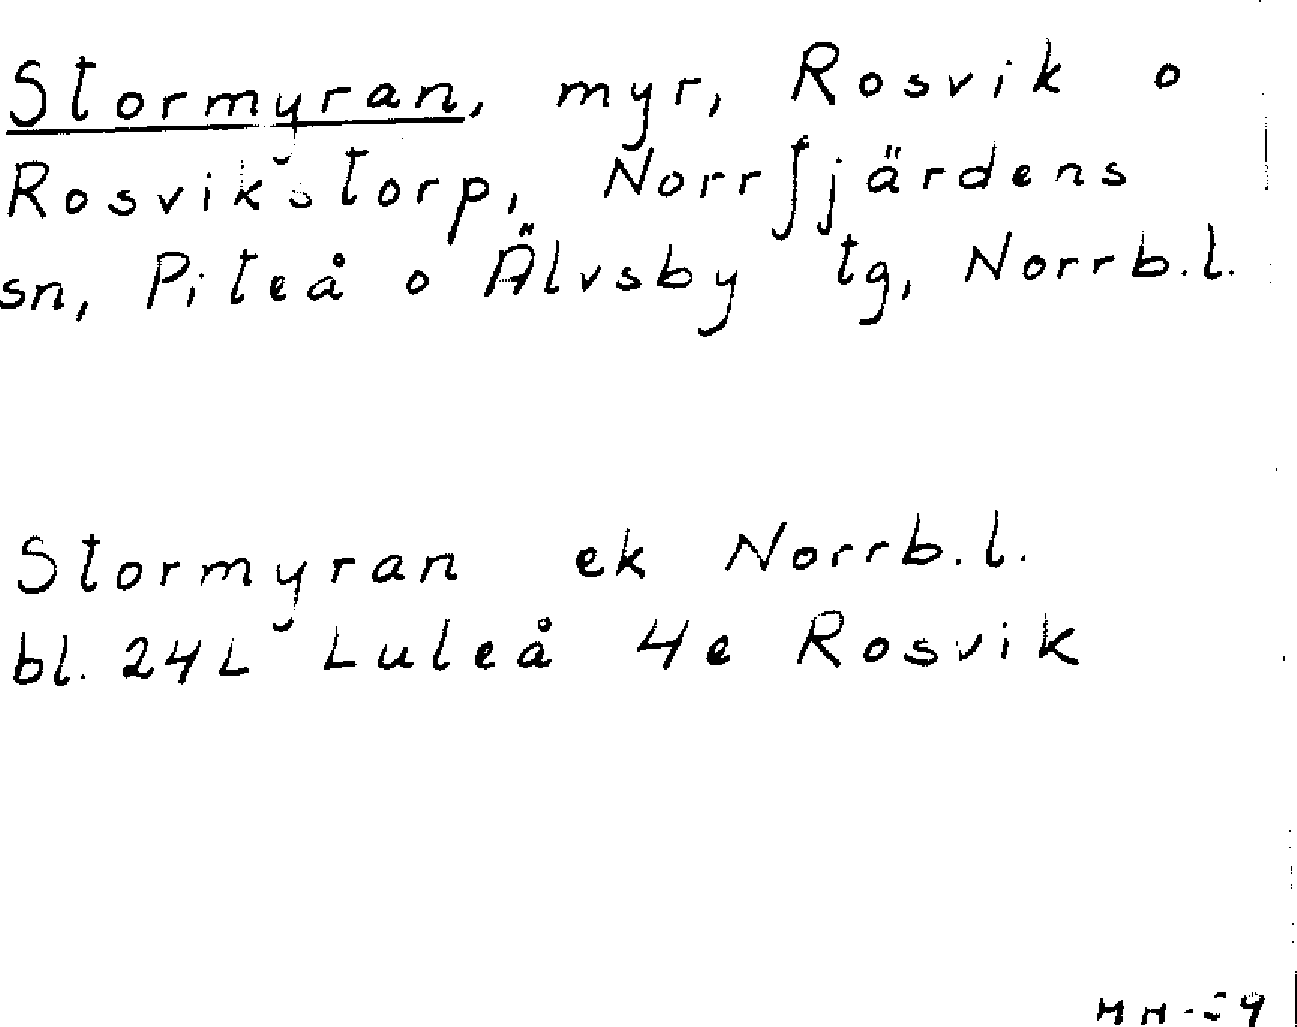 Stormyran, myr, Rosvik o
Rosvikstorp, Norrfjärdens
sn, Piteå o Älvsby tg, Norrb.l.
Stormyran ek Norrb.l.
bl. 24L Luleå 4e Rosvik